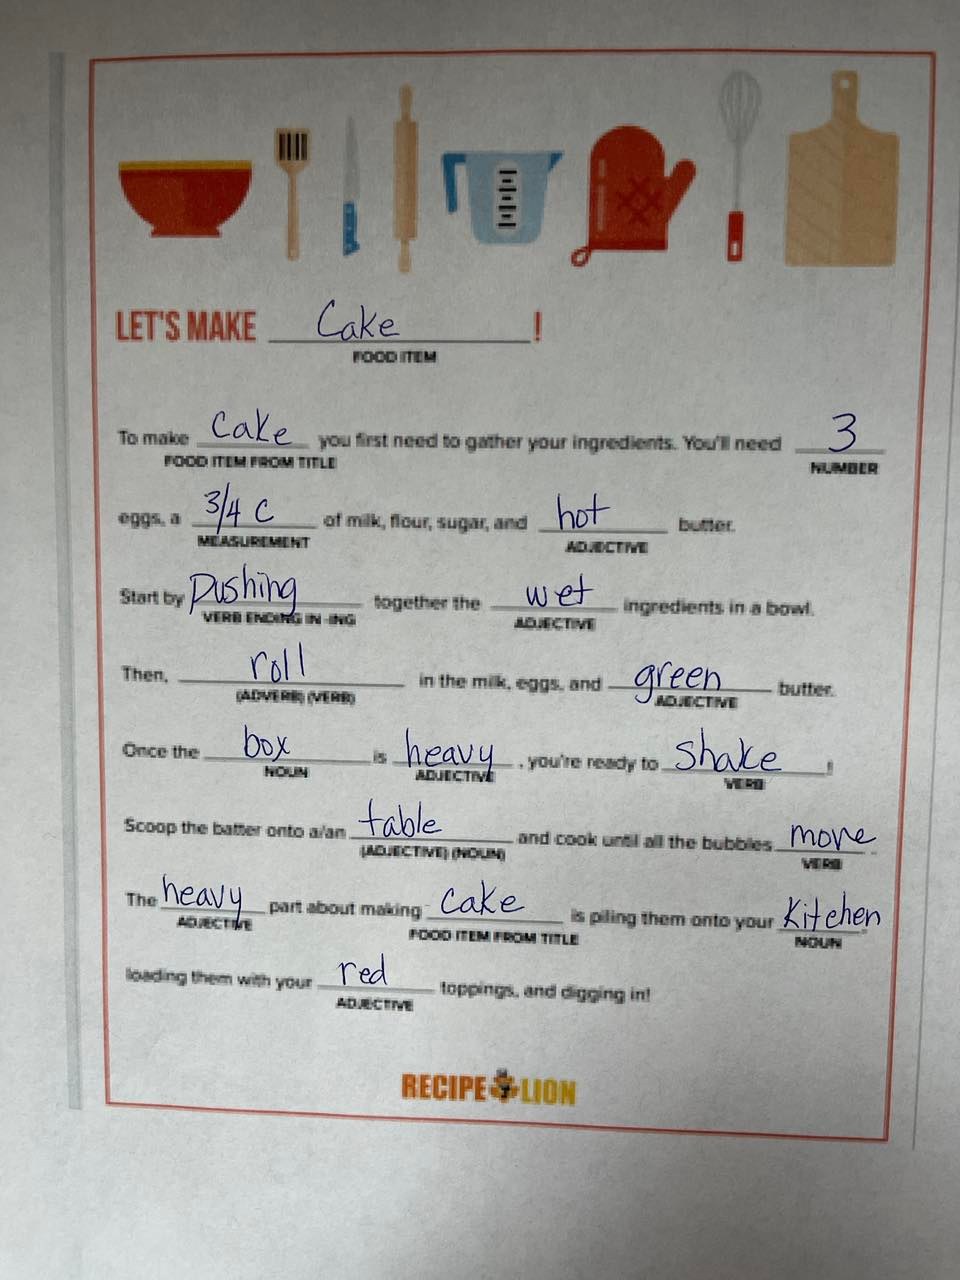 LET'S MAKE Cake !
FOOD ITEM
To make cake you first need to gather your ingredients. You'll need 3
FOOD ITEM FROM TITLE NUMBER
eggs, a 3/4 C of milk, flour, sugar, and hot butter.
MEASUREMENT ADJECTIVE
Start by pushing together the wet ingredients in a bowl.
VERB ENDING IN -ING ADJECTIVE
Then, roll in the milk, eggs, and green butter.
(ADVERB) (VERB) ADJECTIVE
Once the box is heavy, you're ready to shake!
NOUN ADJECTIVE VERB
Scoop the batter onto a/an table and cook until all the bubbles move.
(ADJECTIVE) (NOUN) VERB
The heavy part about making cake is piling them onto your Kitchen,
ADJECTIVE FOOD ITEM FROM TITLE NOUN
loading them with your red toppings, and digging in!
ADJECTIVE
RECIPE LION